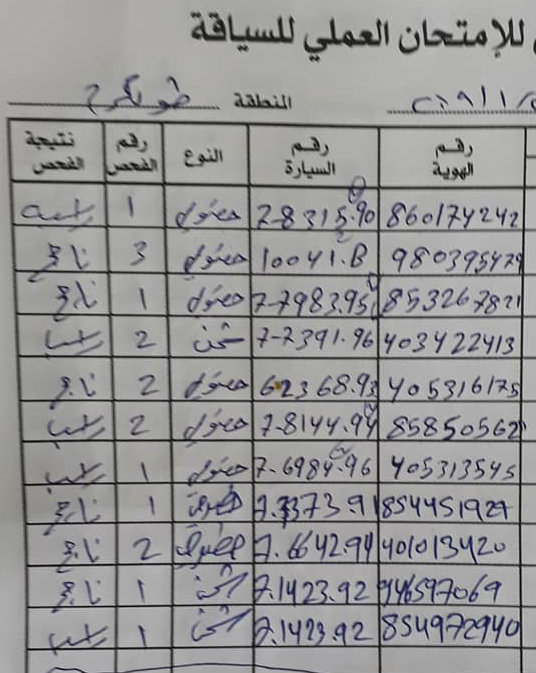 للإمتحان العملي للسياقة
المنطقة طولكرم
رقم الهوية رقم السيارة النوع رقم الفحص نتيجة الفحص
860174242 7-8315-90 خصوصي 1 راسب
980395479 10041.B خصوصي 3 ناجح
853267821 7-7983.95 خصوصي 1 ناجح
403422413 7-7391.96 شحن 2 راسب
405316175 62368.93 خصوصي 2 ناجح
858505621 7-8144.94 خصوصي 2 راسب
405313545 7-6984.96 خصوصي 1 راسب
854451927 7.3373.91 1 ناجح
401013420 7.6642.94 2 ناجح
946597069 7.1423.92 شحن 1 ناجح
854972940 7.1423.92 شحن 1 راسب